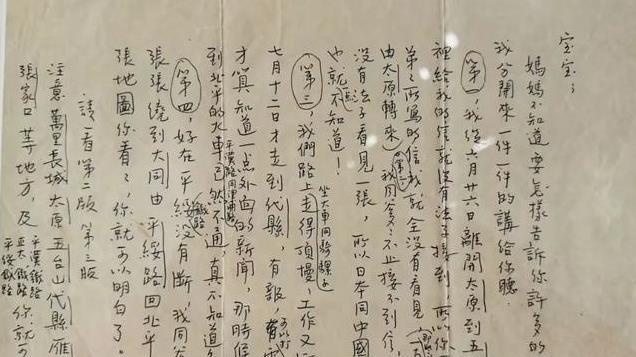 宝宝：
媽媽不知道要怎樣告訴你許多的
我分開來一件一件的講給你聽。
第一，我從六月廿六日離開太原到五
裡給我的信就沒有法子接到，所以你
弟弟所寫的信我就全沒有看見
由太原轉來）第二我同爹爹不止接不到信，
沒有法子看見一張，所以日本同中國
也就不知道！
第三，我們路上走得頂慢，工作又
坐大車同騎騾子
七月十二日才走到代縣，有報，可以打
才算知道一点外面的新聞，那時候
到北平的火車已然不通，真不知道
平漢路同津浦路
第四，好在平綏鐵路沒有斷，我同爹
張張繞到大同由平綏路回北平
張地圖你看看，你就可以明白了。
請看第二版 第三版
注意萬里長城 太原 五台山 代縣 雁
張家口等地方，及
平漢鐵路
正太鐵路
平綏鐵路
你就可